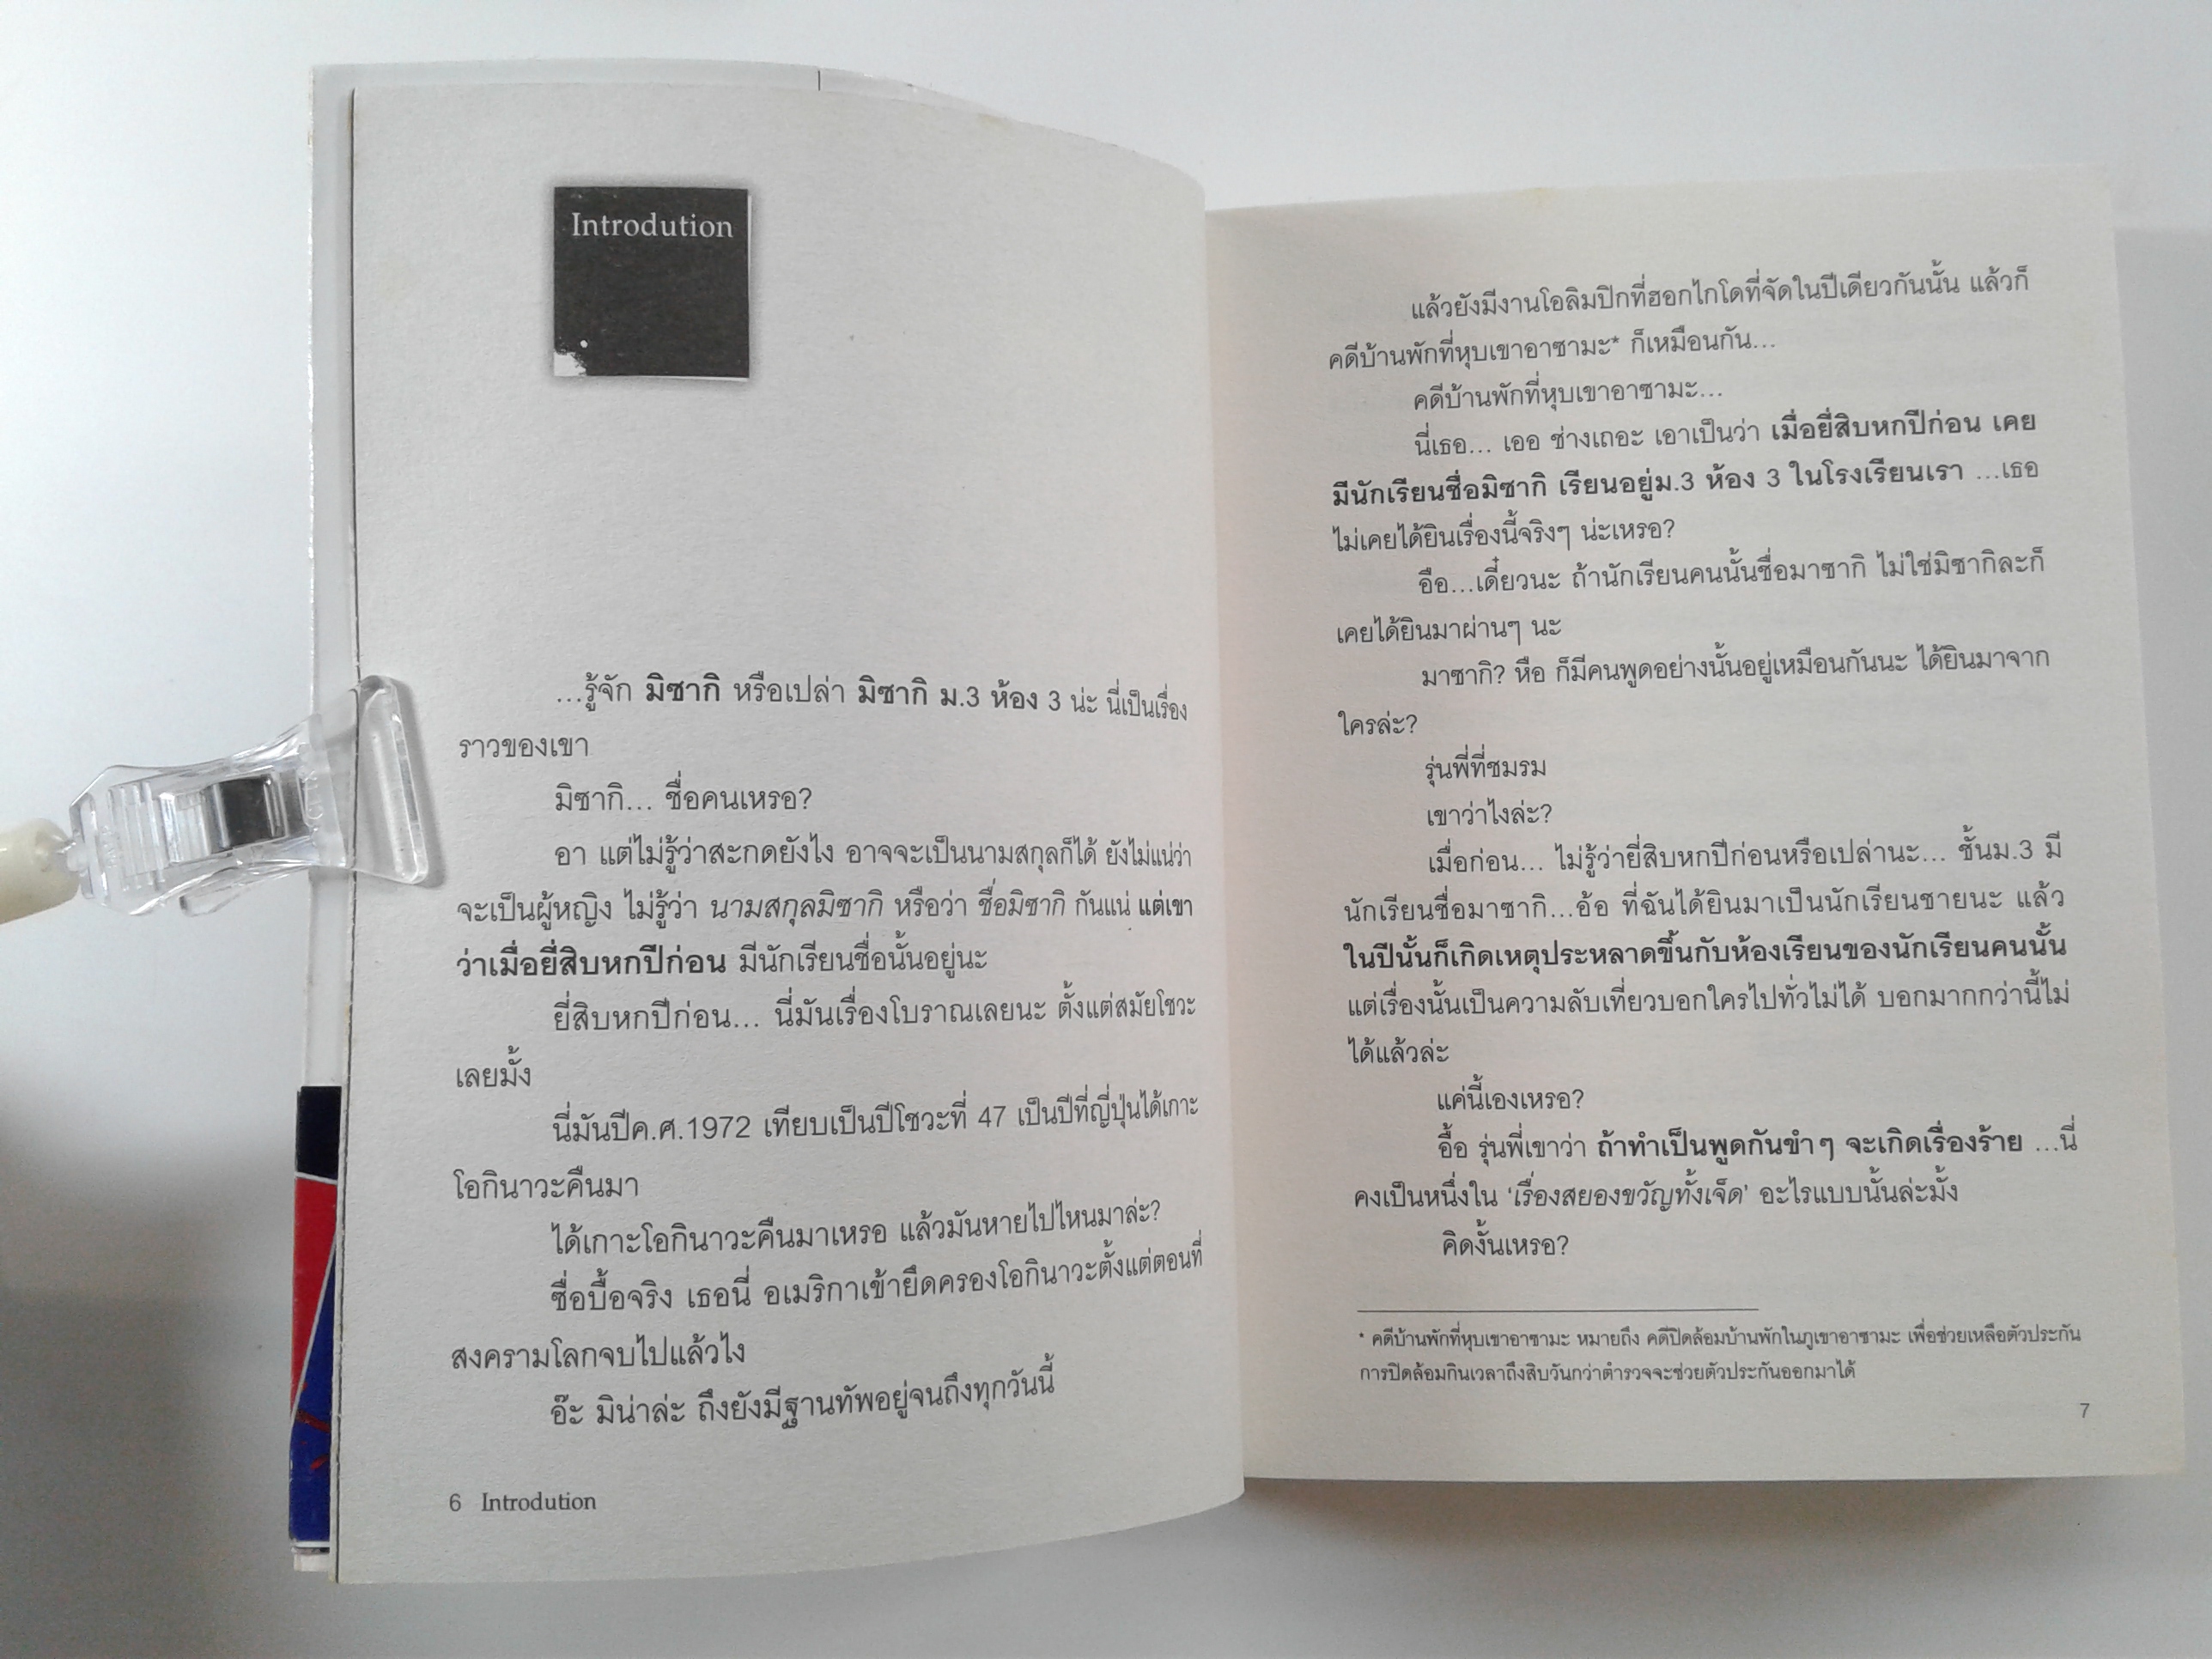 Introdution
...รู้จัก มิซากิ หรือเปล่า มิซากิ ม.3 ห้อง 3 น่ะ นี่เป็นเรื่อง
ราวของเขา
มิซากิ... ชื่อคนเหรอ?
อา แต่ไม่รู้ว่าสะกดยังไง อาจจะเป็นนามสกุลก็ได้ ยังไม่แน่ว่า
จะเป็นผู้หญิง ไม่รู้ว่า นามสกุลมิซากิ หรือว่า ชื่อมิซากิ กันแน่ แต่เขา
ว่าเมื่อยี่สิบหกปีก่อน มีนักเรียนชื่อนั้นอยู่นะ
ยี่สิบหกปีก่อน... นี่มันเรื่องโบราณเลยนะ ตั้งแต่สมัยโชวะ
เลยมั้ง
นี่มันปีค.ศ.1972 เทียบเป็นปีโชวะที่ 47 เป็นปีที่ญี่ปุ่นได้เกาะ
โอกินาวะคืนมา
ได้เกาะโอกินาวะคืนมาเหรอ แล้วมันหายไปไหนมาล่ะ?
ซื่อบื้อจริง เธอนี่ อเมริกาเข้ายึดครองโอกินาวะตั้งแต่ตอนที่
สงครามโลกจบไปแล้วไง
อ๊ะ มิน่าล่ะ ถึงยังมีฐานทัพอยู่จนถึงทุกวันนี้
6 Introdution
แล้วยังมีงานโอลิมปิกที่ฮอกไกโดที่จัดในปีเดียวกันนั้น แล้วก็
คดีบ้านพักที่หุบเขาอาซามะ* ก็เหมือนกัน...
คดีบ้านพักที่หุบเขาอาซามะ...
นี่เธอ... เออ ช่างเถอะ เอาเป็นว่า เมื่อยี่สิบหกปีก่อน เคย
มีนักเรียนชื่อมิซากิ เรียนอยู่ม.3 ห้อง 3 ในโรงเรียนเรา ...เธอ
ไม่เคยได้ยินเรื่องนี้จริงๆ น่ะเหรอ?
อือ...เดี๋ยวนะ ถ้านักเรียนคนนั้นชื่อมาซากิ ไม่ใช่มิซากิละก็
เคยได้ยินมาผ่านๆ นะ
มาซากิ? หือ ก็มีคนพูดอย่างนั้นอยู่เหมือนกันนะ ได้ยินมาจาก
ใครล่ะ?
รุ่นพี่ที่ชมรม
เขาว่าไงล่ะ?
เมื่อก่อน... ไม่รู้ว่ายี่สิบหกปีก่อนหรือเปล่านะ... ชั้นม.3 มี
นักเรียนชื่อมาซากิ...อ้อ ที่ฉันได้ยินมาเป็นนักเรียนชายนะ แล้ว
ในปีนั้นก็เกิดเหตุประหลาดขึ้นกับห้องเรียนของนักเรียนคนนั้น
แต่เรื่องนั้นเป็นความลับเที่ยวบอกใครไปทั่วไม่ได้ บอกมากกว่านี้ไม่
ได้แล้วล่ะ
แค่นี้เองเหรอ?
อื้อ รุ่นพี่เขาว่า ถ้าทำเป็นพูดกันขำๆ จะเกิดเรื่องร้าย ...นี่
คงเป็นหนึ่งใน 'เรื่องสยองขวัญทั้งเจ็ด' อะไรแบบนั้นล่ะมั้ง
คิดงั้นเหรอ?
* คดีบ้านพักที่หุบเขาอาซามะ หมายถึง คดีปิดล้อมบ้านพักในภูเขาอาซามะ เพื่อช่วยเหลือตัวประกัน
การปิดล้อมกินเวลาถึงสิบวันกว่าตำรวจจะช่วยตัวประกันออกมาได้
7